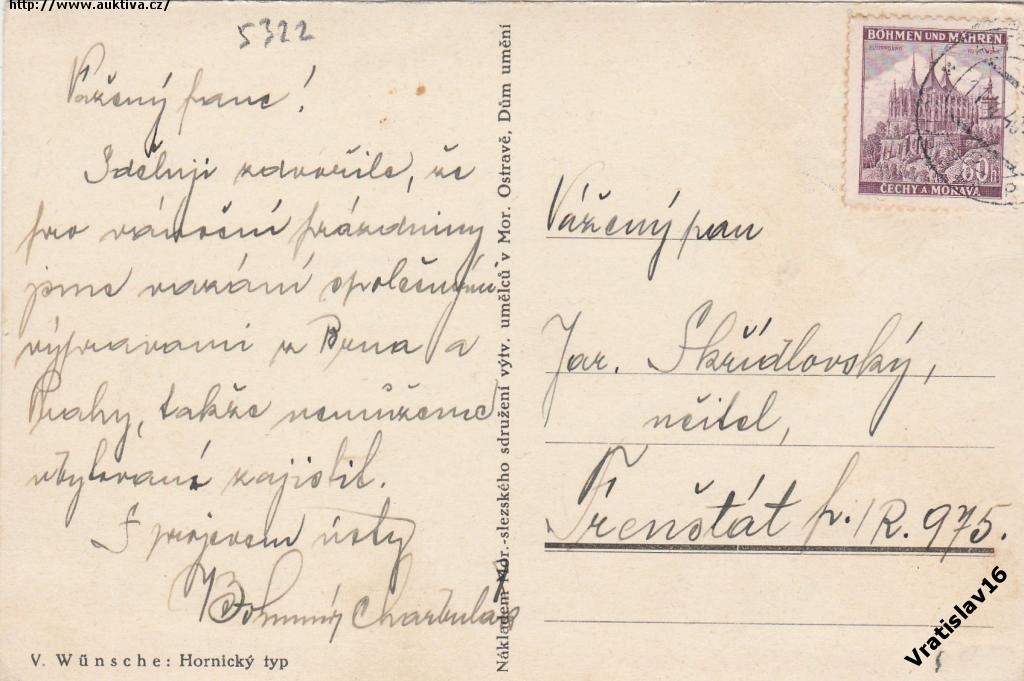 http://www.auktiva.cz/
5322
Vážený pane!
Sděluji zdvořile, že
pro vánoční prázdniny
jsme vázáni společnými
výpravami z Brna a
Prahy, takže nemůžeme
ubytování zajistit.
S projevem úcty
V. Wünsche: Hornický typ
Nákladem Mor.-slezského sdružení výtv. umělců v Mor. Ostravě, Dům umění
BÖHMEN UND MÄHREN
60h
ČECHY A MORAVA
Vážený pan
Jar. Skřídlovský,
učitel,
Frenštát p./R. 975.
Vratislav16